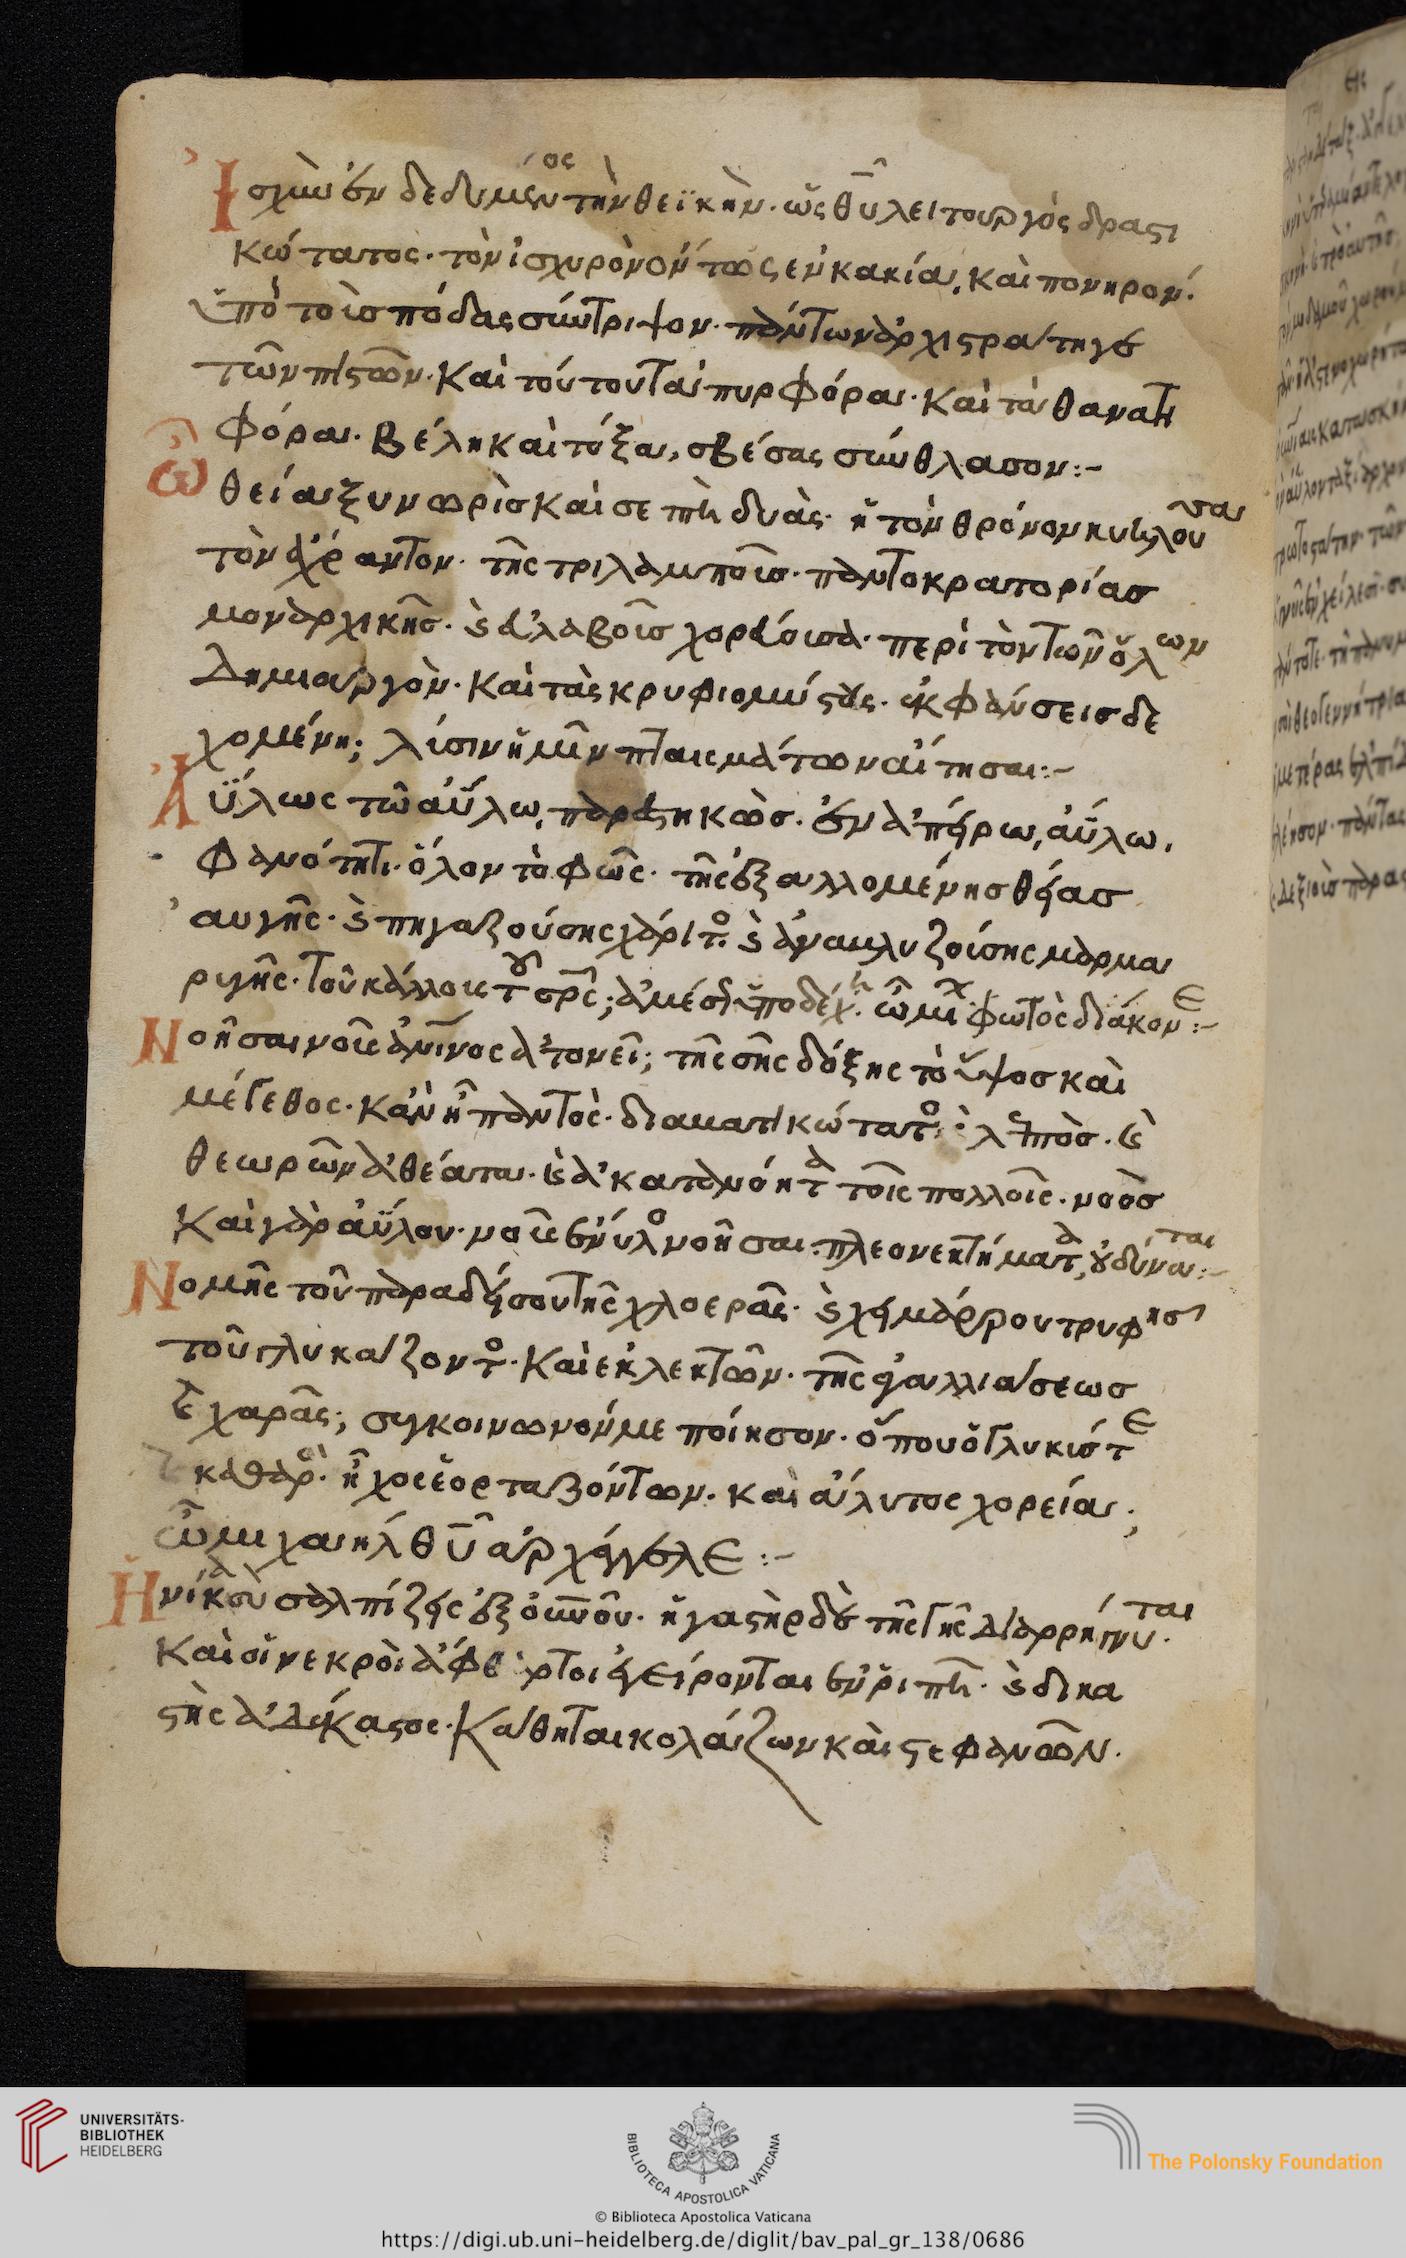 Ἰσχὺν ἐνδεδυμένος τὴν θεϊκὴν· ὡς θῦ λειτουργὸς δραστι
κώτατος· τὸν ἰσχυρὸν ὄντως ἐν κακία, καὶ πονηρον·
ὑπὸ τοῖς πόδας σύντριψον· πάντων ἀρχιστράτηγε
τῶν πιστῶν· καὶ τούτου τὰ πυρφόρα· καὶ τὰ θανατη
φόρα· βέλη καὶ τόξα, σβέσας σύνθλασον:-
Ὦ θεία ξυνωρὶς καὶ σεπτὴ δυὰς· ἡ τὸν θρόνον κυκλουσα
τὸν ἄχραντον· τῆς τριλαμποῦς· παντοκρατορίας
μοναρχικῆς· καὶ εὐλαβοῖς χορεύουσα· περὶ τὸν τῶν ὅλων
Δημιουργὸν· καὶ τὰς κρυφιομύστους· ἐκφάνσεις δε
χομένη; λύσιν ἡμῖν πταισμάτων αἴτησαι:-
Ἀΰλως τῶ ἀΰλω, παρεστηκὼς· ἐν ἀπείρω, ἀΰλω,
φανότητι· ὅλον τὸ φῶς· τῆς ἐξαλλομένης θείας
αυγῆς· καὶ πηγαζούσης χάριτος καὶ ἀναβλυζούσης μαρμα
ρυγῆς· τοῦ κάλλους τοῦ σρς; ἀμέσως ὑποδέχη· ὦ μιχ φωτὸς διάκονε:-
Νοῆσαι νοῦς ἀνινος ἀτονεῖ; τῆς σῆς δόξης τὸ ὕψος καὶ
μέγεθος· κἀν ἦ παντὸς· διαματικώτατος· λεπτὸς· καὶ
θεωρῶν ἀθέατα· καὶ ἀκατανόητα τοῖς πολλοῖς· νοὸς
Καὶ γὰρ ἀΰλου· νοῦς ἔνυλος νοῆσαι· πλεονεκτήματα, οὐ δύναται:-
Νομῆς τοῦ παραδείσου τῆς χλοερᾶς· καὶ χειμάρρου τρυφῆς
τοῦ γλυκάζοντος· καὶ ἐκλεκτῶν· τῆς ἀγαλλιάσεως
καὶ χαρᾶς; συγκοινωνόν με ποίησον· ὅπου ὁ γλυκίστε
καθαρὸς· ἦχος ἑορταζόντων· καὶ ἄληκτος χορεία;
ὦ μιχαὴλ θῦ ἀρχάγγελε:-
Ἡνίκα σὺ σαλπίζεις ἐξ οὐνοῦ· ἡ γαστὴρ δὲ τῆς γῆς διαρρήγνυται·
Καὶ οἱ νεκροὶ ἄφθαρτοι ἐγείρονται ἐν ῥιπῆ· καὶ δικα
στὴς ἀδέκαστος· Κάθηται κολάζων καὶ στεφανῶν·
UNIVERSITÄTS-
BIBLIOTHEK
HEIDELBERG
BIBLIOTECA APOSTOLICA VATICANA
The Polonsky Foundation
© Biblioteca Apostolica Vaticana
https://digi.ub.uni-heidelberg.de/diglit/bav_pal_gr_138/0686